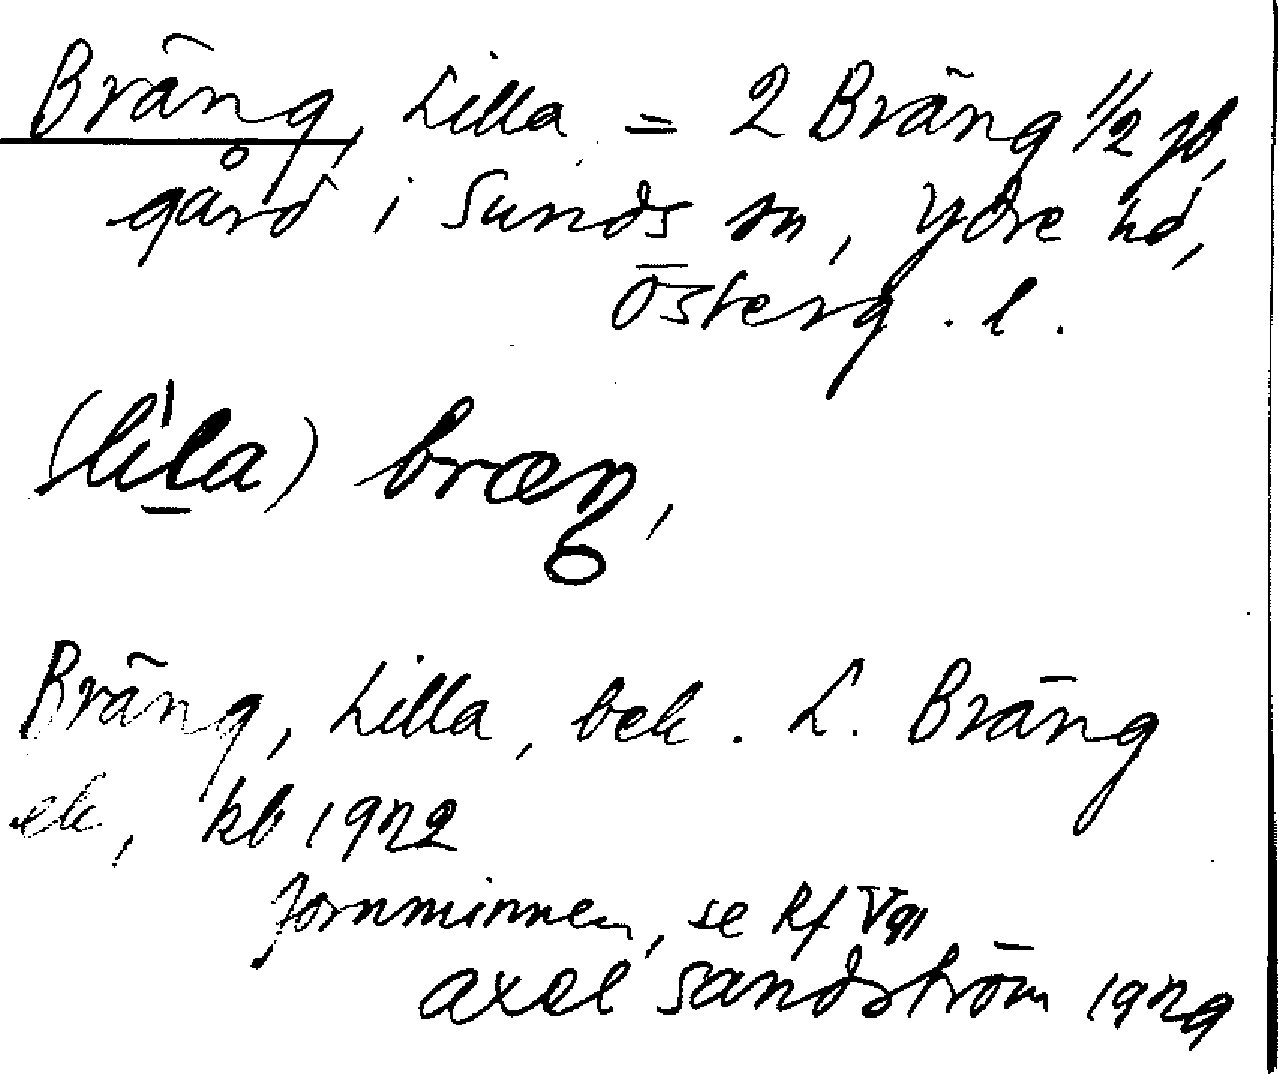 Bräng, Lilla = 2 Bräng 1/2 jb,
gård i Sunds sn, Ydre hd,
Österg. l.
(lìla) bræŋ,
Bräng, Lilla, bek. L. Bräng
ek, kb 1922
fornminnen, se Rf V 91
Axel Sandström 1929